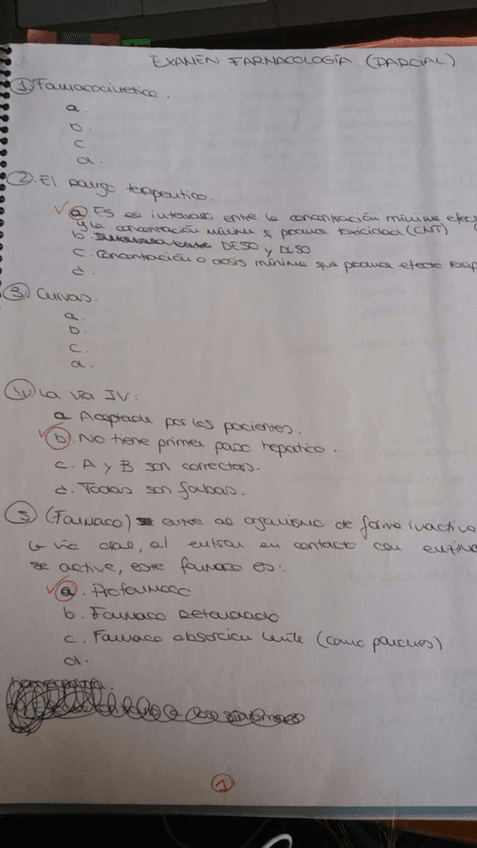 EXAMEN FARMACOLOGÍA (PARCIAL)
1. Farmacocinetica.
a.
b.
c.
d.
2. El rango terapeutico.
a. Es el intervalo entre la concentración mínima efec
y la concentración mínima q produce toxicidad (CMT)
b. DE50 y DL50
c. Concentración o dosis mínima que produce efecto terap
d.
3. Curvas.
a.
b.
c.
d.
4. La vía IV:
a. Aceptada por los pacientes.
b. No tiene primer paso hepatico.
c. A y B son correctas.
d. Todas son falsas.
5. (Farmaco) entre al organismo de forma inactiva
vía oral, al entrar en contacto con
se active, este farmaco es:
a. Profarmaco
b. Farmaco Retardado
c. Farmaco absorcion lenta (como parches)
d.
1